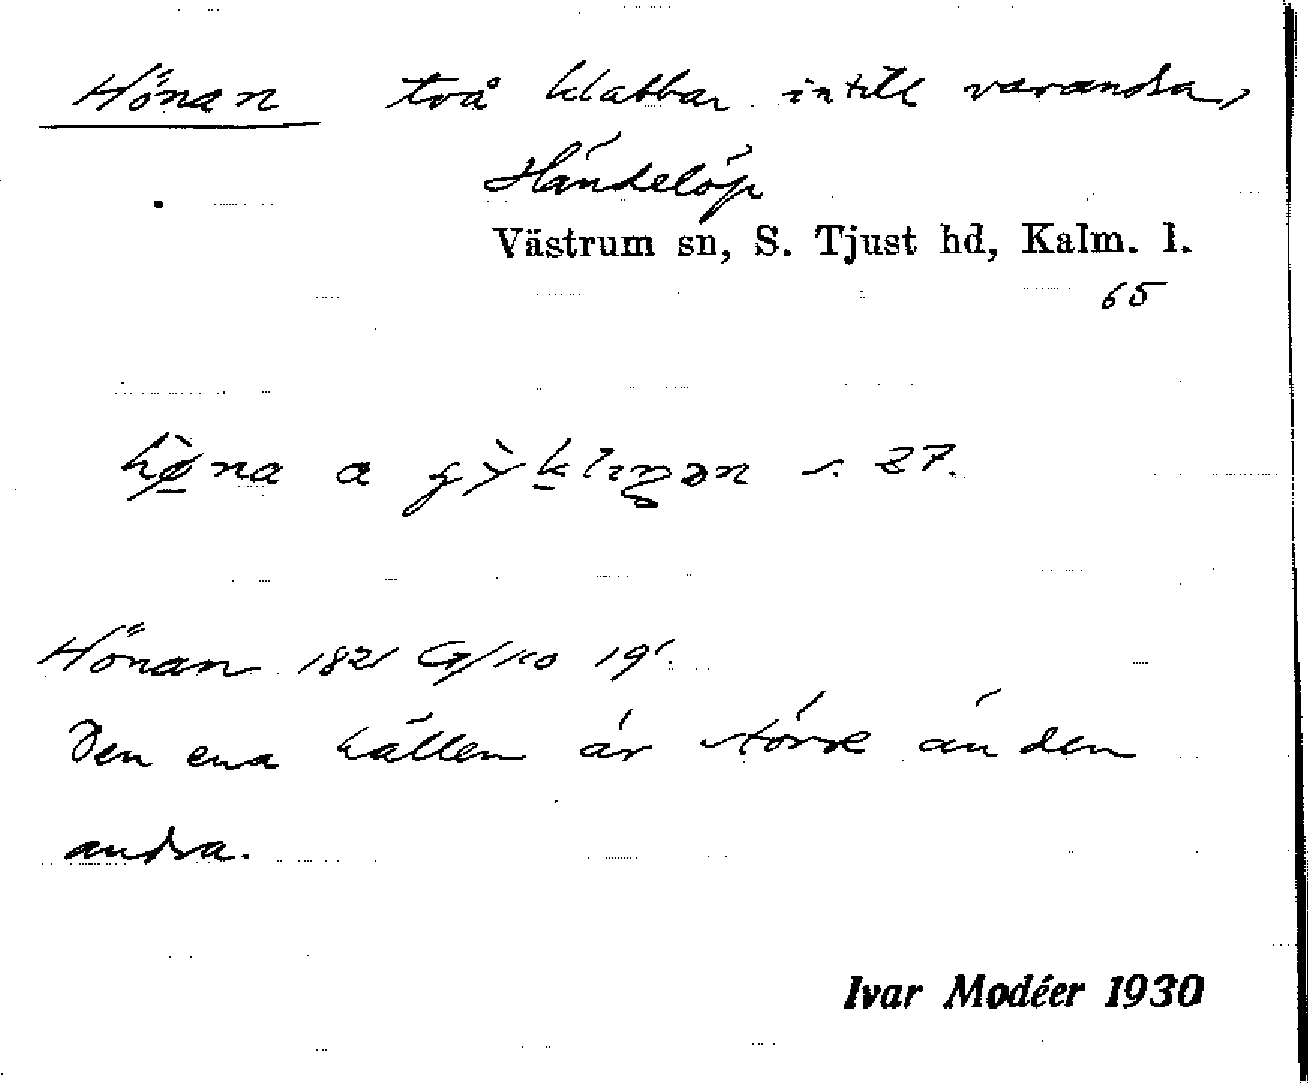 Hönan två klabbar intill varandra,
Händelöp
Västrum sn, S. Tjust hd, Kalm. l.
65
hø̀na a gỳklıŋən s. 27.
Hönan 1821 G/110 19'.
Den ena hällen är större än den
andra.
Ivar Modéer 1930